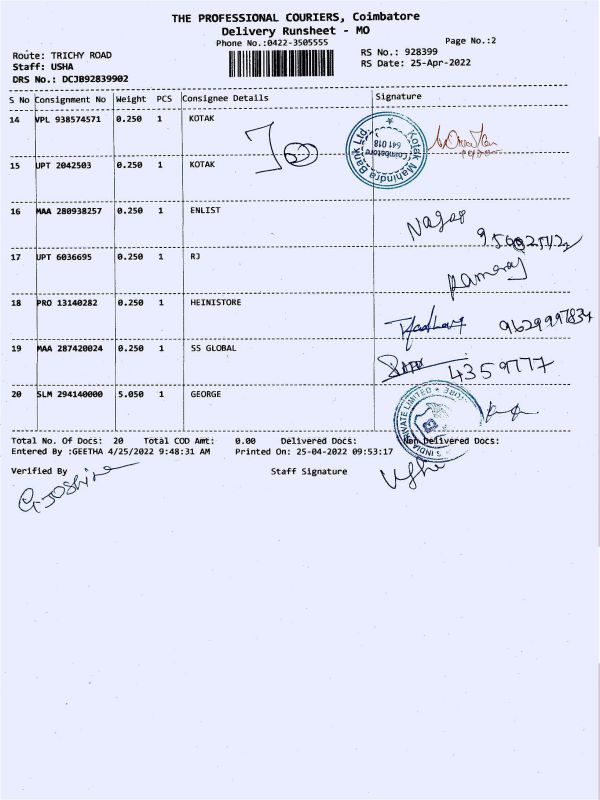 THE PROFESSIONAL COURIERS, Coimbatore
Delivery Runsheet - MO
Phone No.:0422-3505555
Page No.:2
Route: TRICHY ROAD
RS No.: 928399
Staff: USHA
RS Date: 25-Apr-2022
DRS No.: DCJB92839902
S No Consignment No Weight PCS Consignee Details Signature
14 VPL 938574571 0.250 1 KOTAK
Kotak Mahindra Bank Ltd. Coimbatore 641 018
15 UPT 2042503 0.250 1 KOTAK
16 MAA 280938257 0.250 1 ENLIST
17 UPT 6036695 0.250 1 RJ
18 PRO 13140282 0.250 1 HEINISTORE
9629997834
19 MAA 287420024 0.250 1 SS GLOBAL
4359777
20 SLM 294140000 5.050 1 GEORGE
S INDIA PRIVATE LIMITED
Total No. Of Docs: 20 Total COD Amt: 0.00 Delivered Docs: Non Delivered Docs:
Entered By :GEETHA 4/25/2022 9:48:31 AM Printed On: 25-04-2022 09:53:17
Verified By Staff Signature
G JOShine
Usha